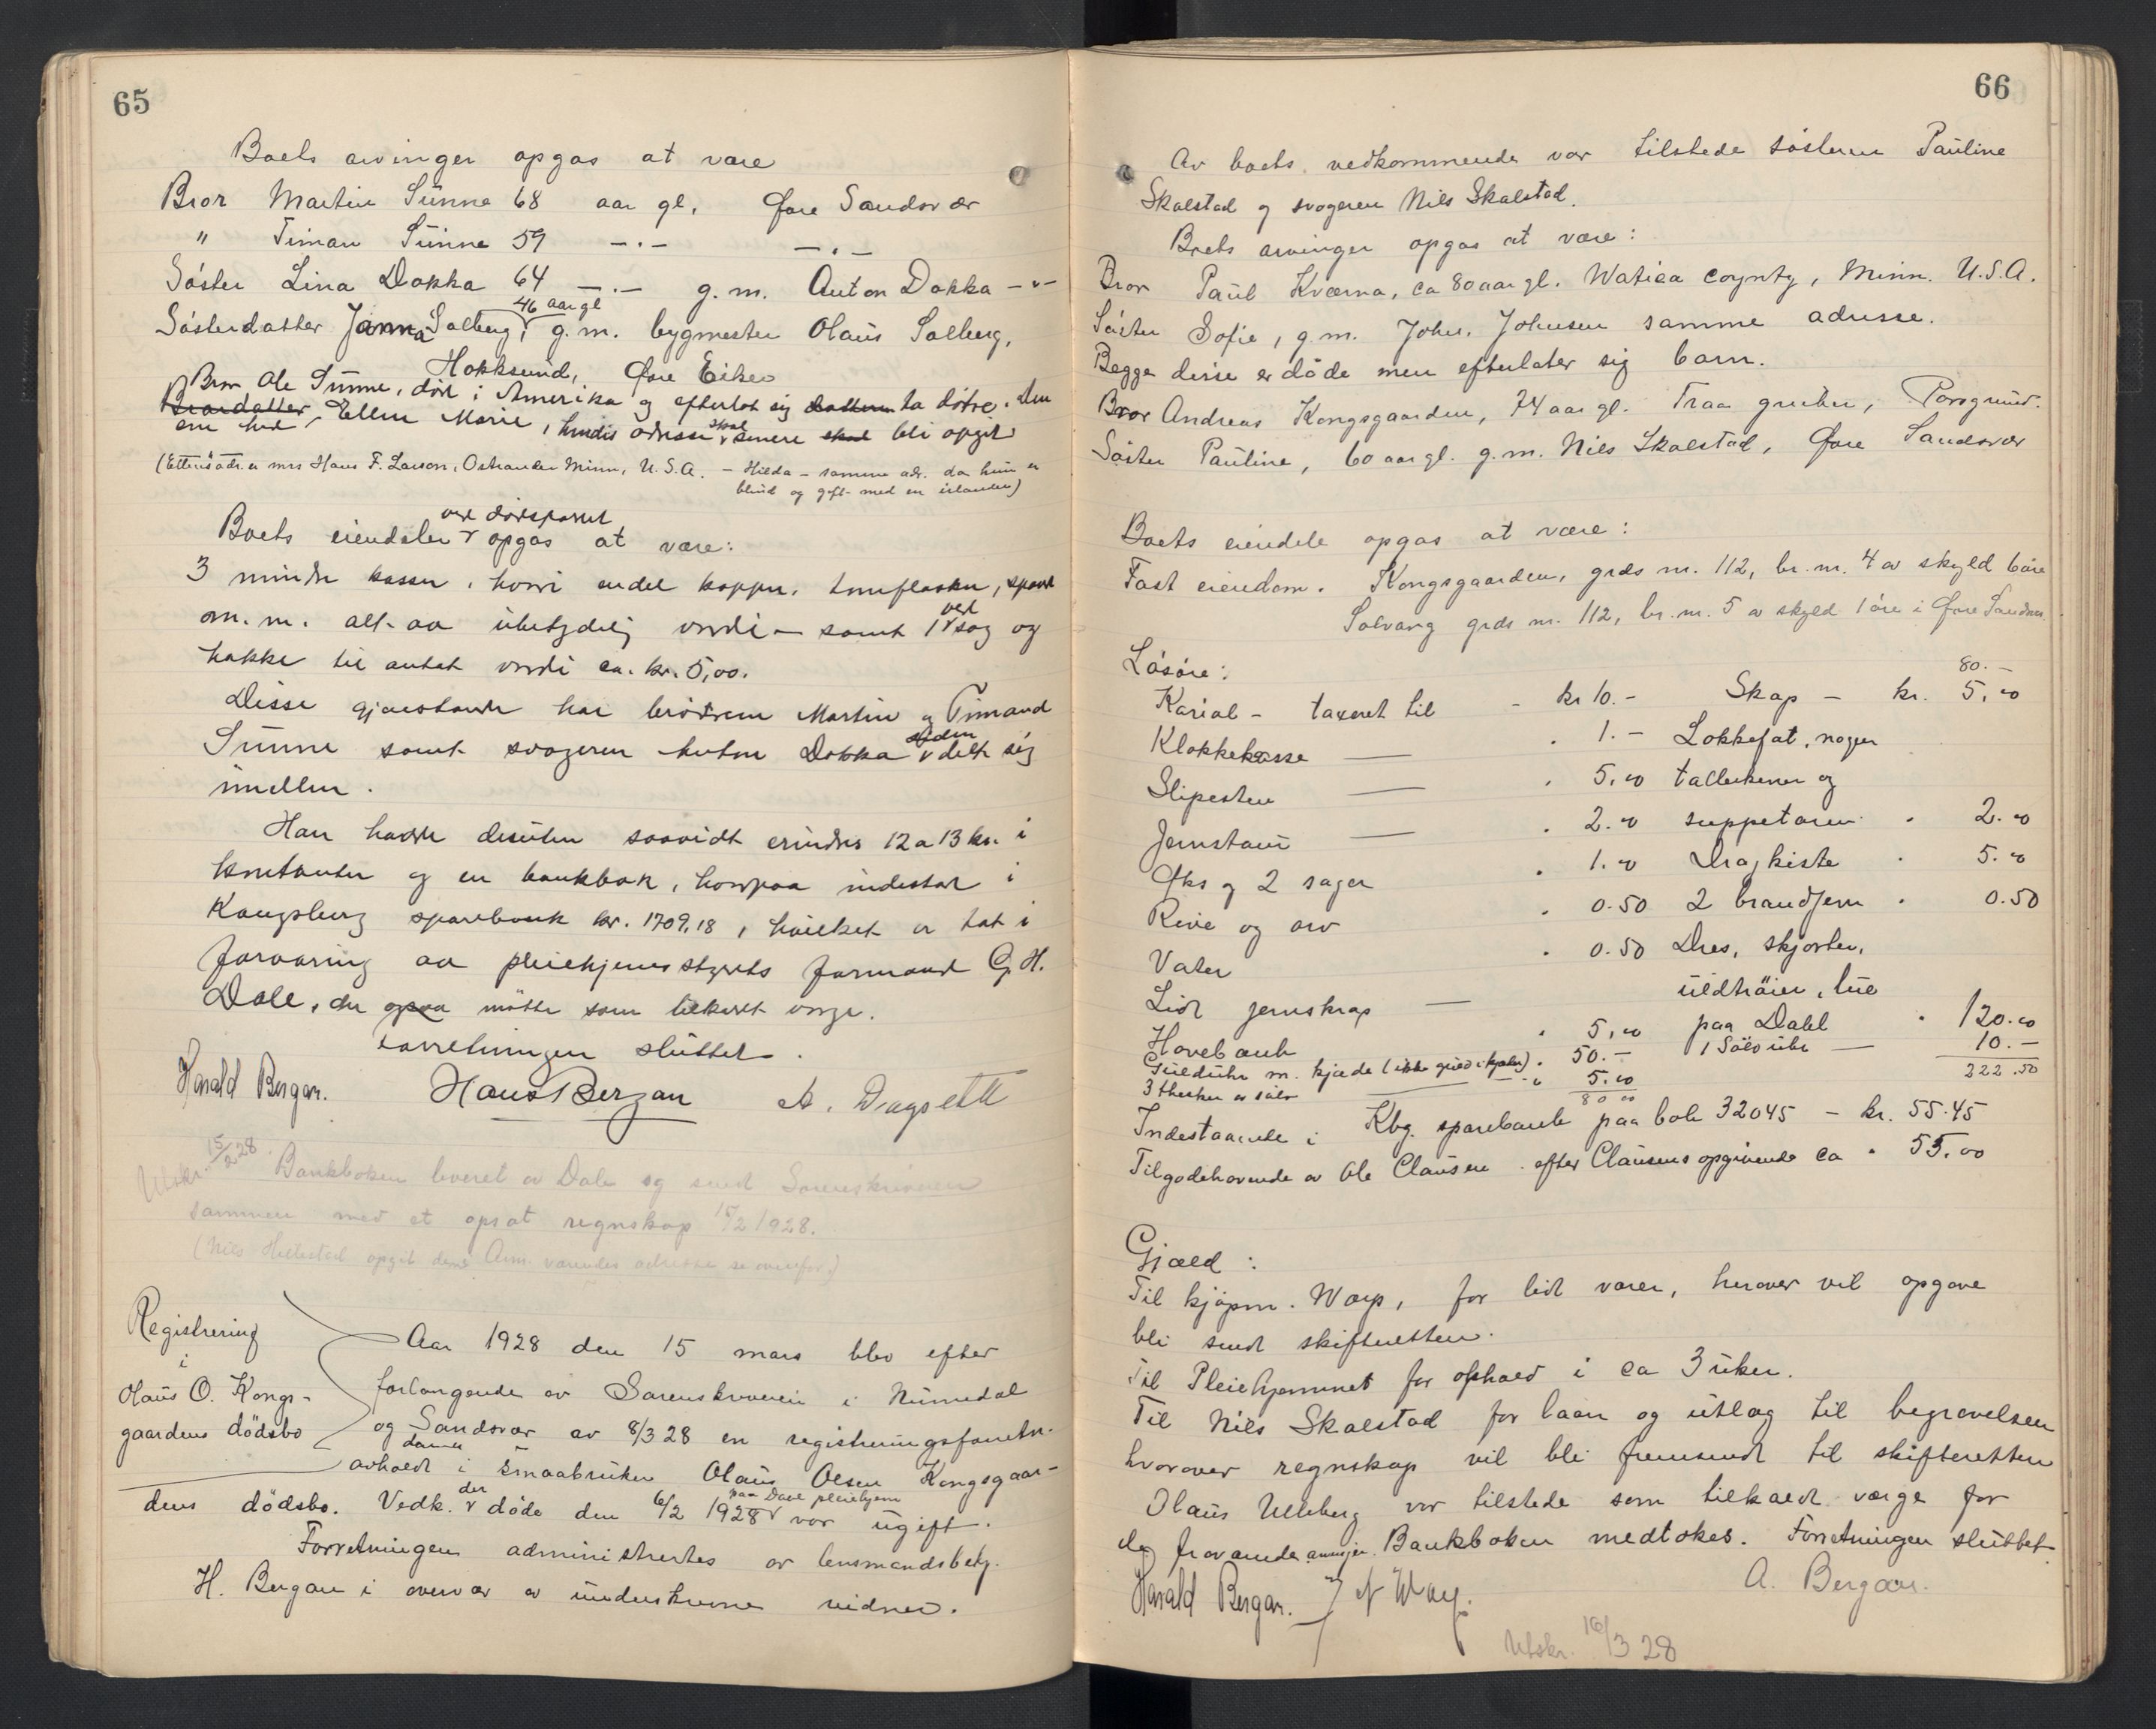 65
Boets arvinger opgas at være
Bror Martin Sünne 68 aar gl. Øvre Sandsvær
" Timan Sünne 59 -.- -.-
Söster Lina Dokka 64 -.- g.m. Anton Dokka -"-
46 aar gl
Sösterdatter Janna Solberg, g.m. bygmester Olaüs Solberg,
Hokksund, Øvre Eiker
Bror Ole Sünne, död i Amerika og efterlot sig to dötre. Den
Brordatter, Ellen Marie, hendes adresse skal senere bli opgit
(Ellens adr. er mrs Hans F. Larson, Ostrander Minn, U.S.A. - Hilda - samme adr. da hun er
blind og gift med en irlænder)
ved dödsfaldet
Boets eiendeler opgas at være:
3 mindre kasser, hvori endel kopper, tomflasker, spand
m.m. alt av übetydelig værdi - samt 1 vedsag og
hakke til antat værdi ca. kr. 5,00.
Disse gjenstande har brödrene Martin og Timand
Sünne samt svogeren Anton Dokka siden delt sig
imellem.
Han hadde desuten saavidt erindres 12 a 13 kr. i
kontanter og en bankbok, hvorpaa indestaar i
Kongsberg sparebank kr. 1709,18, hvilket er tat i
forvaring av pleiehjemsstyrets formand G. H.
Dale, der møtte som tilkaldt verge.
Forretningen slüttet.
Harald Bergan. Hans Bergan A. Dagsett
Utskr. 15/2 28. Bankboken leveret av Dale og sendt Sorenskriveren
sammen med et opsat regnskap 15/2 1928.
(Nils Hillestad opgit den i Am. værendes adresse se ovenfor)
Registrering
i
Olaüs O. Kongs-
gaardens dödsbo
Aar 1928 den 15 mars blev efter
forlangende av Sorenskriveren i Nümedal
og Sandsvær av 8/3 28 en registreringsforretn.
avholdt i smaabrüker Olaüs Olsen Kongsgaar-
dens dödsbo. Vedk. der döde den 6/2 1928 paa Dahl pleiehjem var ügift.
Forretningen administrertes av lensmandsbetj.
H. Bergan i overvær av ünderskrevne vidner.
66
Av boets vedkommende var tilstede söstren Paüline
Skalstad og svogeren Nils Skalstad.
Boets arvinger opgas at være:
Bror Paül Kværna, ca 80 aar gl. Watica coynty, Minn. U.S.A.
Söster Sofie, g.m. John. Johnsen samme adresse.
Begge disse er döde men efterlater sig barn.
Bror Andreas Kongsgaarden, 74 aar gl. Traa gruber, Porsgrund.
Söster Paüline, 60 aar gl. g.m. Nils Skalstad, Øvre Sandsvær
Boets eiendele opgas at være:
Fast eiendom. Kongsgaarden, grds nr. 112, br. nr. 4 av skyld 6 öre
Solvang grds nr. 112, br. nr. 5 av skyld 1 öre i Øvre Sandsvær.
Lösöre:
80.-
Kariol - taxeret til - kr 10.- Skap - kr. 5,00
Klokkekasse — . 1.- Lokkefat, nogen
Slipesten — . 5,00 tallerkener og
Jernstaur — . 2.00 suppeterin . 2.00
Øks og 2 sager . 1.00 Dragkiste . 5.00
Rive og orv . 0.50 2 brandjern . 0.50
Vater . 0.50 Dres, skjorter,
Lidt jernskrap — üldtröier, lue
Hovebænk . 5,00 paa Dahl . 120.00
Gülduhr m. kjæde (ikke güld i kjeden) . 50.- 1 Sölvühr — 10.-
3 theskeer av sölv — 5.00 222.50
80 00
Indestaaende i Kbg. sparebank paa bok 32045 - kr. 55.45
Tilgodehavende av Ole Clausen . efter Claüsens opgivende ca . 55.00
Gjæld:
Til kjöpm. Warp, for lidt varer, herover vil opgave
bli sendt skifteretten.
Til Pleiehjemmet for ophold i ca 3 uker.
Til Nils Skalstad for laan og ütlæg til begravelsen
hvorover regnskap vil bli fremsendt til skifteretten
Olaüs Ulleberg var tilstede som tilkaldt værge for
de fraværende arvinger. Bankboken medtokes. Forretningen slüttet.
Harald Bergan. A. Bergan.
Utskr. 16/3 28